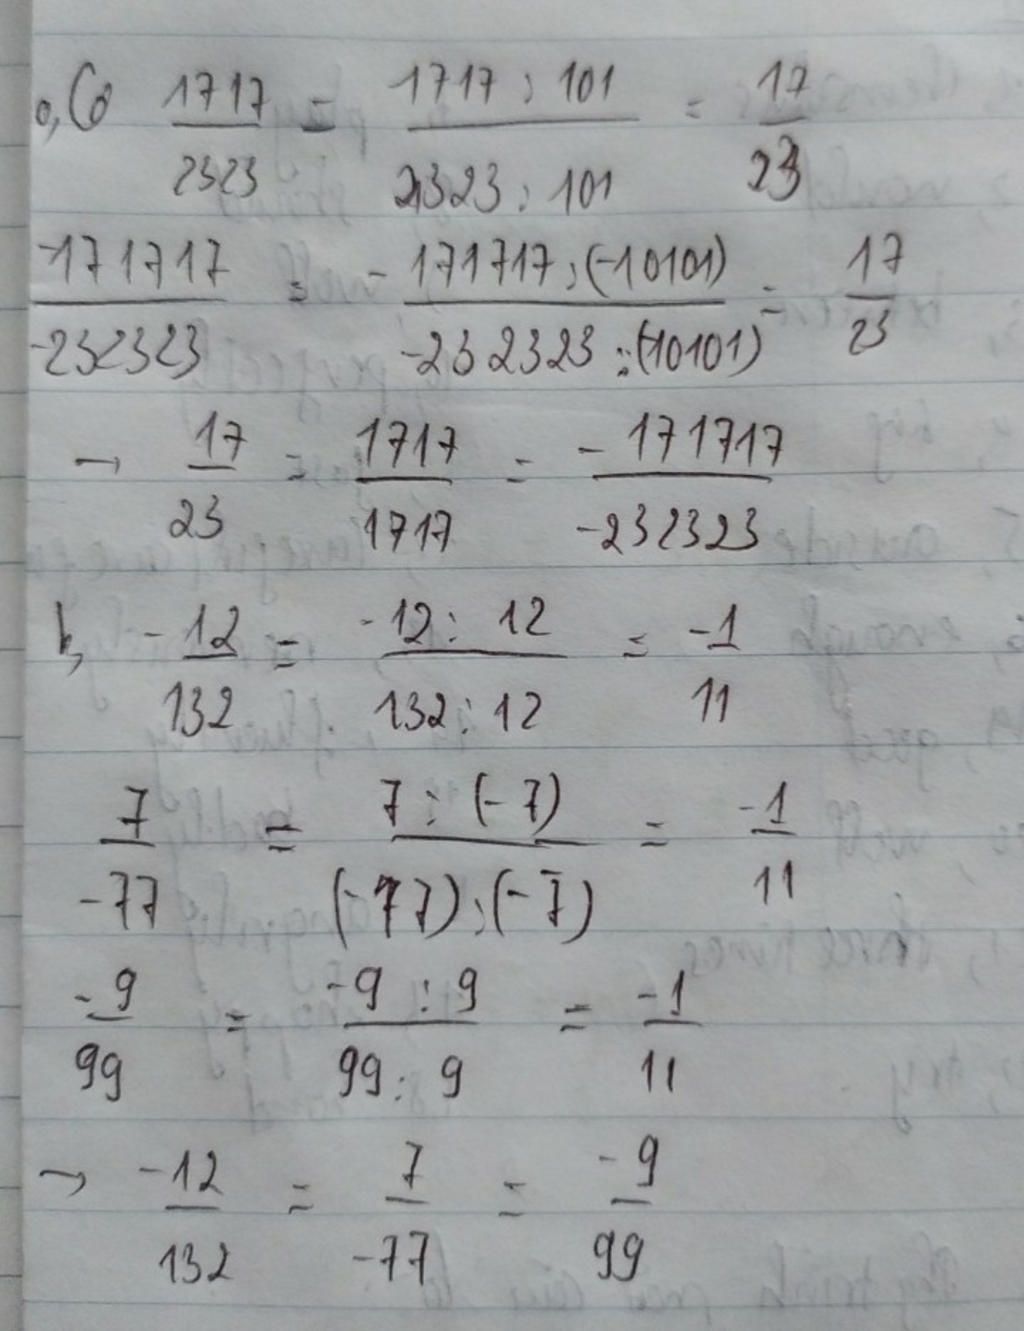 a, Có 1717/2323 = 1717 : 101/2323 : 101 = 17/23
-171717/-232323 = -171717 : (-10101)/-232323 : (-10101) = 17/23
→ 17/23 = 1717/1717 = -171717/-232323
b, -12/132 = -12 : 12/132 : 12 = -1/11
7/-77 = 7 : (-7)/(-77) : (-7) = -1/11
-9/99 = -9 : 9/99 : 9 = -1/11
→ -12/132 = 7/-77 = -9/99